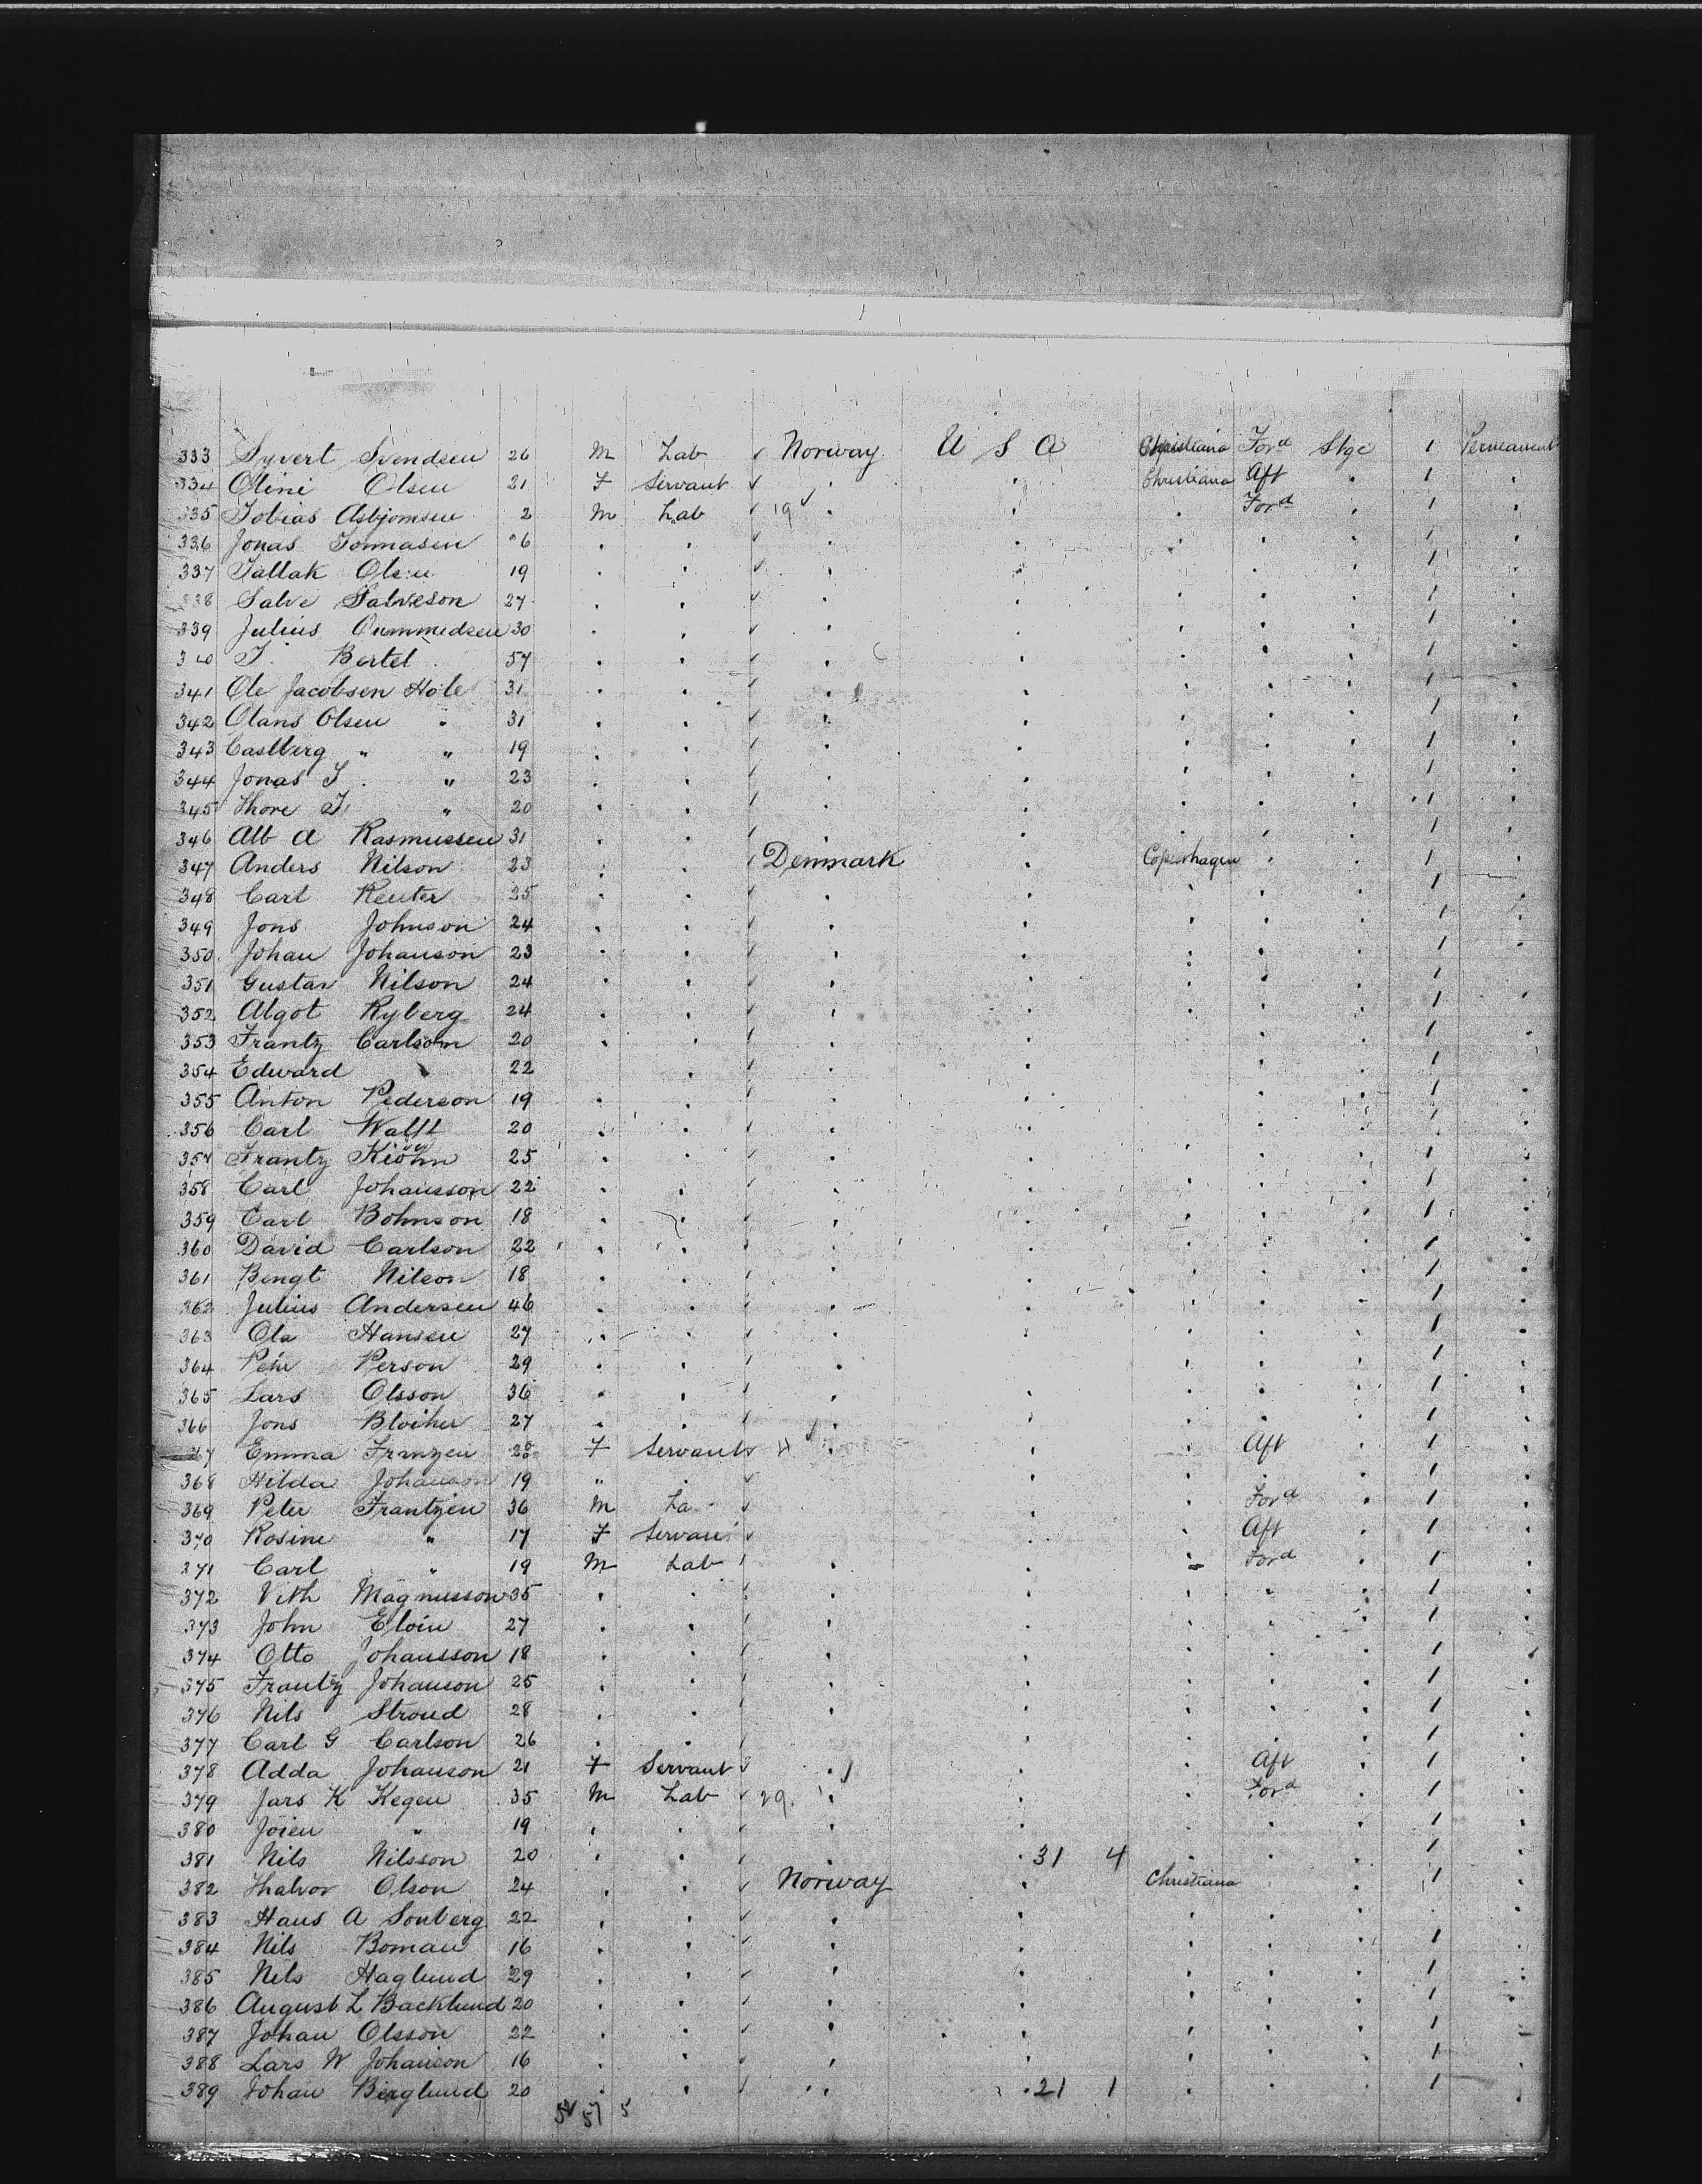 333 Syvert Svendsen 26 M Lab Norway U S A Christiana Ford Stge 1 Permanent
334 Olini Olsen 21 F Servant " " Christiana Aft " 1 "
335 Tobias Asbjornsen 2 M Lab 19 " " " Ford " 1 "
336 Jonas Tonnasen 26 " " " " " " " 1 "
337 Tallak Olsen 19 " " " " " " " 1 "
338 Salve Salveson 27 " " " " " " " 1 "
339 Julius Ommundsen 30 " " " " " " " 1 "
340 T. Bertel 57 " " " " " " " 1 "
341 Ole Jacobsen Hole 31 " " " " " " " 1 "
342 Olans Olsen " 31 " " " " " " " 1 "
343 Castberg " " 19 " " " " " " " 1 "
344 Jonas T. " 23 " " " " " " " 1 "
345 Thore T. " 20 " " " " " " " 1 "
346 Alb A Rasmussen 31 " " " " " " " 1 "
347 Anders Nilson 23 " " Denmark " Copenhagen " " 1 "
348 Carl Reuter 25 " " " " " " " 1 "
349 Jons Johnson 24 " " " " " " " 1 "
350 Johan Johanson 23 " " " " " " " 1 "
351 Gustav Nilson 24 " " " " " " " 1 "
352 Algot Ryberg 24 " " " " " " " 1 "
353 Frantz Carlson 20 " " " " " " " 1 "
354 Edward " 22 " " " " " " 1 "
355 Anton Pederson 19 " " " " " " " 1 "
356 Carl 20 " " " " " " " 1 "
357 Frantz 25 " " " " " " " 1 "
358 Carl Johansson 22 " " " " " " " 1 "
359 Carl Bohnson 18 " " " " " " " 1 "
360 David Carlson 22 " " " " " " " 1 "
361 Bengt Nilson 18 " " " " " " " 1 "
362 Julius Andersen 46 " " " " " " " 1 "
363 Ola Hansen 27 " " " " " " " 1 "
364 Pehr Person 29 " " " " " " " 1 "
365 Lars Olsson 36 " " " " " " " 1 "
366 Jons 27 " " " " " " " 1 "
367 Emma Franzen F Servant 4 " " " Aft " 1 "
368 Hilda Johanson 19 " " " " " " 1 "
369 Peter Frantzen 36 M La " " Ford " 1 "
370 Rosine " 17 F Servant " " Aft " 1 "
371 Carl " 19 M Lab " " " Ford " 1 "
372 Magnusson 35 " " " " " " " 1 "
373 John 27 " " " " " " " 1 "
374 Otto Johansson 18 " " " " " " " 1 "
375 Frantz Johanson 25 " " " " " " " 1 "
376 Nils Stroud 28 " " " " " " " 1 "
377 Carl G Carlson 26 " " " " " " " 1 "
378 Adda Johanson 21 F Servant " " " Aft " 1 "
379 Jars K Kegen 35 M Lab 29 " " " Ford " 1 "
380 " 19 " " " " " " " 1 "
381 Nils Nilsson 20 " " " " 31 4 " " " 1 "
382 Thalvor Olson 24 " " Norway " Christiana " " 1 "
383 Hans A Sonberg 22 " " " " " " " "
384 Nils Boman 16 " " " " " " " 1 "
385 Nels Haglund 29 " " " " " " " 1 "
386 August L Backlund 20 " " " " " " " 1 "
387 Johan Olsson 22 " " " " " " " 1 "
388 Lars W Johanson 16 " " " " " " " 1 "
389 Johan Berglund 20 " " " " 21 1 " " " 1 "
57 5